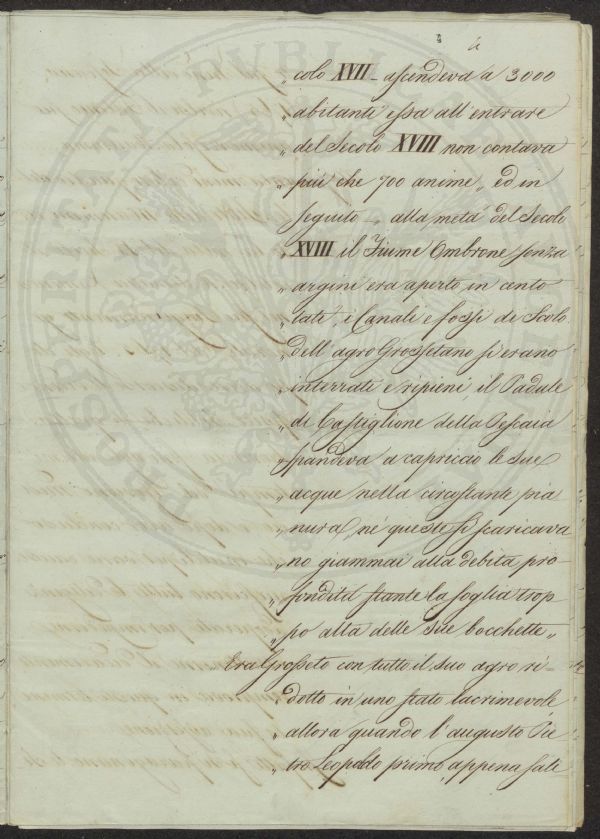 „ colo XVII – ascendeva a 3000
„ abitanti essa all'entrare
„ del Secolo XVIII non contava
„ più che 700 anime„ ed in
seguito –„ alla metà del Secolo
„ XVIII il Fiume Ombrone senza
„ argini era aperto in cento
„ lati, i Canali e fossi di Scolo
„ dell'agro Grossetano si erano
„ interrati e ripieni, il Padule
„ di Castiglione della Pescaia
„ spandeva a capriccio le sue
„ acque nella circostante pia
„ nura, né queste si scaricava
„ no giammai alla debita pro-
„ fondità stante la soglia trop
„ po alta delle sue bocchette„
Era Grosseto con tutto il suo agro ri-
„ dotto in uno stato lacrimevole
„ allora quando l'augusto Pie
„ tro Leopoldo primo, appena sali